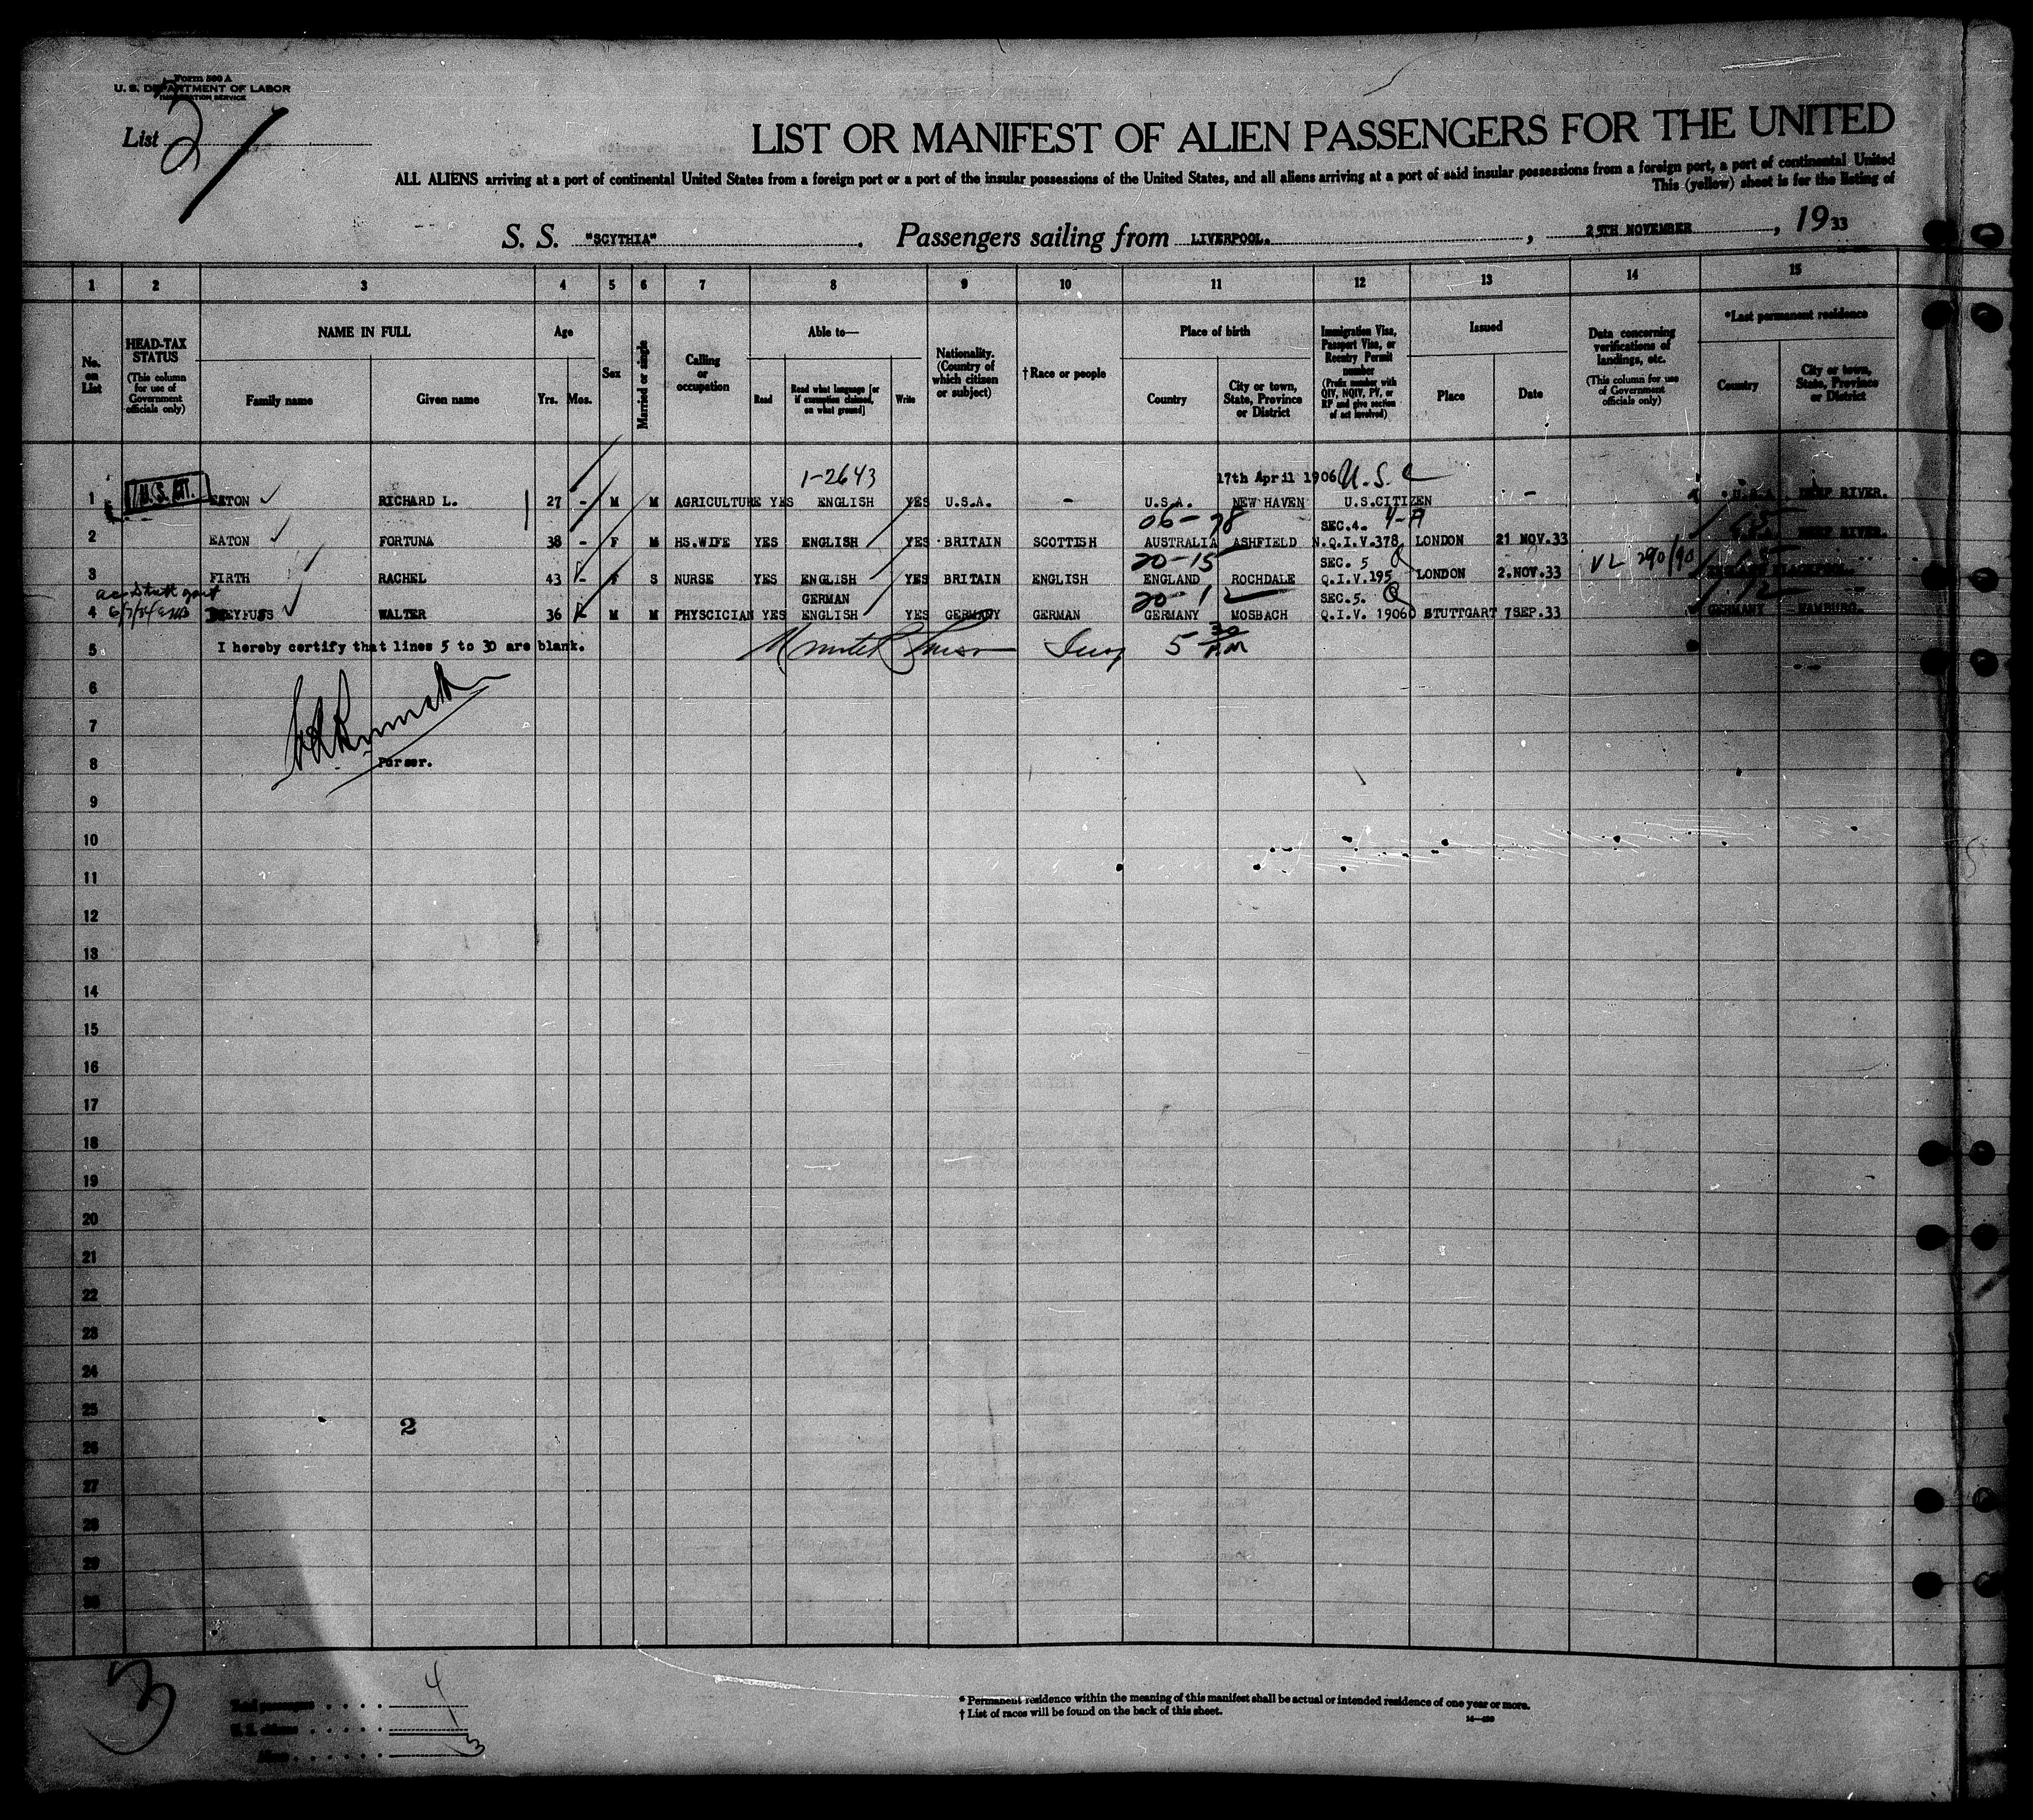 Form 500 A
U. S. DEPARTMENT OF LABOR
IMMIGRATION SERVICE
List 2
LIST OR MANIFEST OF ALIEN PASSENGERS FOR THE UNITED
ALL ALIENS arriving at a port of continental United States from a foreign port or a port of the insular possessions of the United States, and all aliens arriving at a port of said insular possessions from a foreign port, a port of continental United
This (yellow) sheet is for the listing of
S. S. "SCYTHIA" . Passengers sailing from LIVERPOOL. , 25TH NOVEMBER , 19 33
1 2 3 4 5 6 7 8 9 10 11 12 13 14 15
No. on List
HEAD-TAX STATUS
(This column for use of Government officials only)
NAME IN FULL
Family name
Given name
Age
Yrs. Mos.
Sex
Married or single
Calling or occupation
Able to—
Read
Read what language [or if exemption claimed, on what ground]
Write
Nationality. (Country of which citizen or subject)
†Race or people
Place of birth
Country
City or town, State, Province or District
Immigration Visa, Passport Visa, or Reentry Permit number
(Prefix number with QIV, NQIV, PV, or RP and give section of act involved)
Issued
Place
Date
Data concerning verifications of landings, etc.
(This column for use of Government officials only)
*Last permanent residence
Country
City or town, State, Province or District
1-2643 17th April 1906 U.S.C
1 U.S. CIT. EATON RICHARD L. 27 - M M AGRICULTURE YES ENGLISH YES U.S.A. - U.S.A. NEW HAVEN U.S.CITIZEN - U.S.A. DEEP RIVER.
06-78 SEC.4. 4-A
2 EATON FORTUNA 38 - F M HS.WIFE YES ENGLISH YES BRITAIN SCOTTISH AUSTRALIA ASHFIELD N.Q.I.V.378 LONDON 21 NOV.33 U.S.A. DEEP RIVER.
20-15 SEC. 5 VL 290/90
3 FIRTH RACHEL 43 - F S NURSE YES ENGLISH YES BRITAIN ENGLISH ENGLAND ROCHDALE Q.I.V.195 LONDON 2.NOV.33 ENGLAND BLACKPOOL.
GERMAN 20-1 SEC.5. Q 1/12
4 DREYFUSS WALTER 36 M M PHYSCICIAN YES ENGLISH YES GERMANY GERMAN GERMANY MOSBACH Q.I.V. 19060 STUTTGART 7SEP.33 GERMANY HAMBURG.
5 I hereby certify that lines 5 to 30 are blank. 5 30 P.M
6
7
8 Purser.
9
10
11
12
13
14
15
16
17
18
19
20
21
22
23
24
25
2
26
27
28
29
30
3
Total passengers . . . . 4
U. S. citizens . . . . . 1
Aliens . . . . . . 3
* Permanent residence within the meaning of this manifest shall be actual or intended residence of one year or more.
† List of races will be found on the back of this sheet.